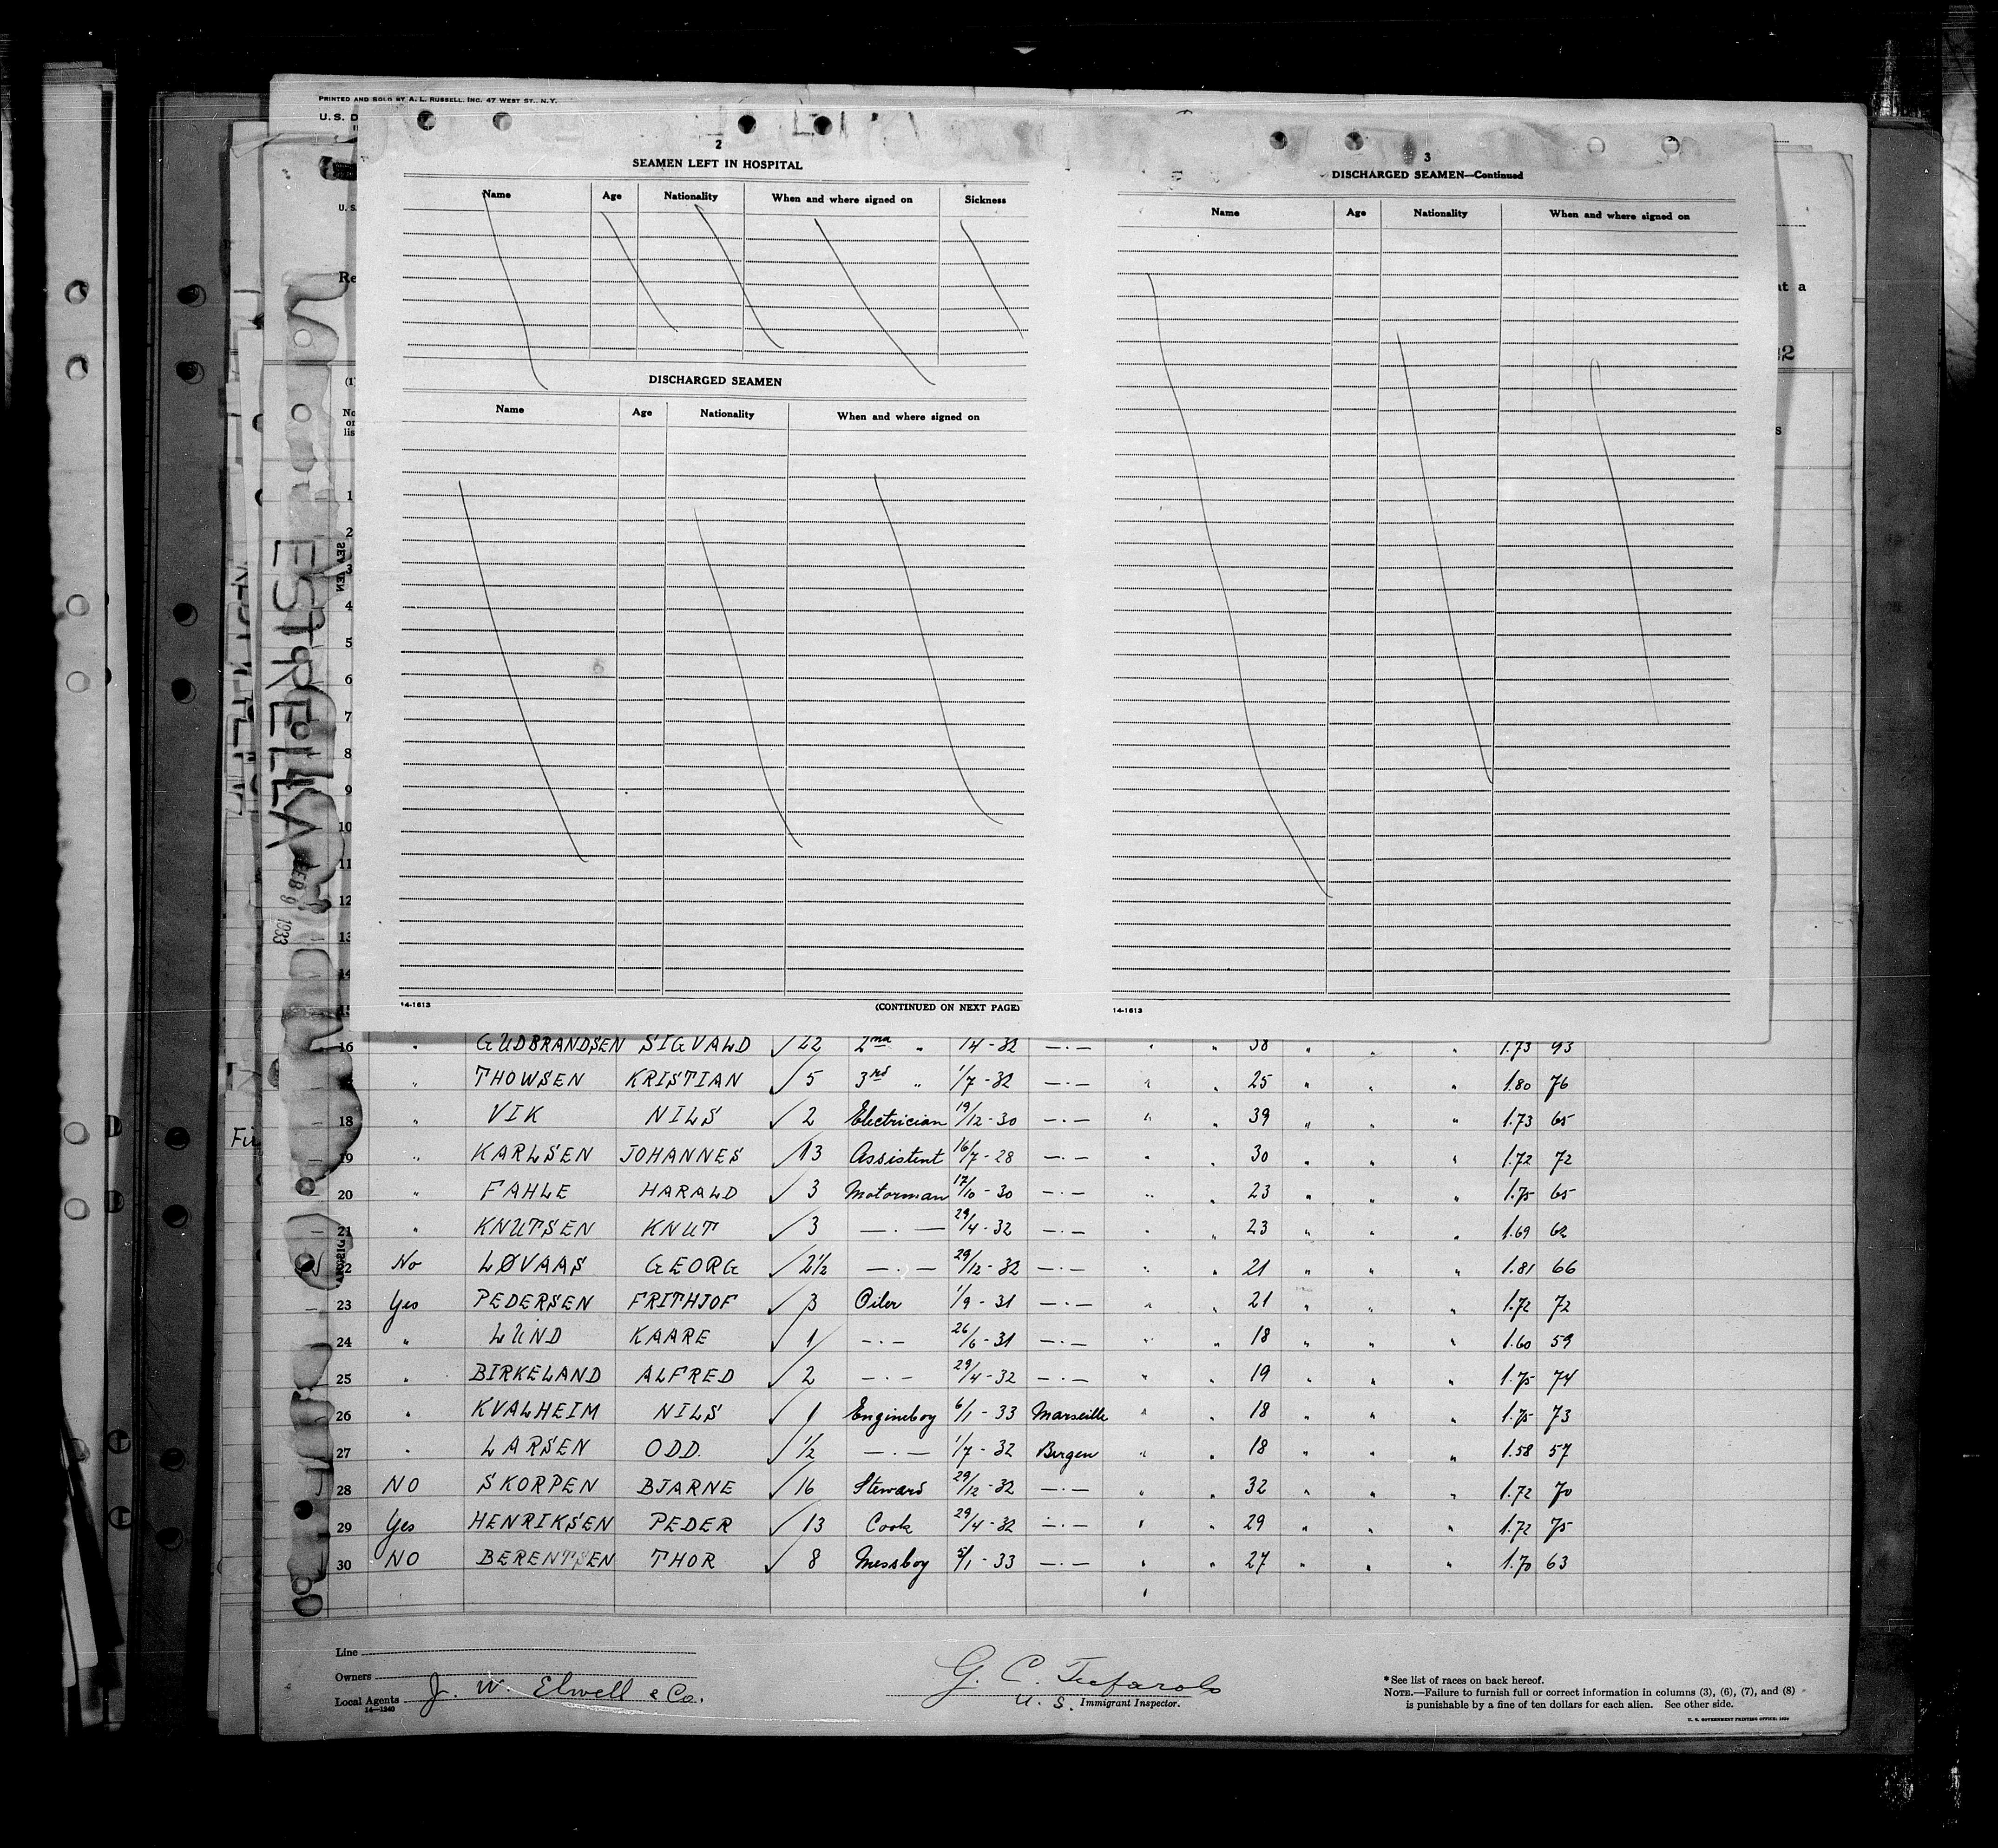 PRINTED AND SOLD BY A. L. RUSSELL, INC. 47 WEST ST., N.Y.
U. S. D
2
SEAMEN LEFT IN HOSPITAL
Name Age Nationality When and where signed on Sickness
DISCHARGED SEAMEN
Name Age Nationality When and where signed on
14-1613 (CONTINUED ON NEXT PAGE)
3
DISCHARGED SEAMEN—Continued
Name Age Nationality When and where signed on
14-1613
U. S.
Re
at a
No
or
lis
1
2
3
4
5
6
7
8
9
10
11
12
13
14
15
ESTRELLA
FEB 9 1933
16 " GUDBRANDSEN SIGVALD √ 22 2nd " 1/4-32 —·— " " 38 " " " 1.73 93
" THOWSEN KRISTIAN √ 5 3rd " 1/7-32 —·— " " 25 " " " 1.80 76
18 " VIK NILS √ 2 Electrician 19/12-30 —·— " " 39 " " " 1.73 65
19 " KARLSEN JOHANNES √ 13 Assistent 16/7-28 —·— " " 30 " " " 1.72 72
20 " FAHLE HARALD √ 3 Motorman 17/10-30 —·— " " 23 " " " 1.75 65
21 " KNUTSEN KNUT √ 3 —·— 29/4-32 —·— " " 23 " " " 1.69 62
22 No LØVAAS GEORG √ 2½ —·— 29/12-32 —·— " " 21 " " " 1.81 66
23 Yes PEDERSEN FRITHJOF √ 3 Oiler 1/9-31 —·— " " 21 " " " 1.72 72
24 " LUND KAARE √ 1 —·— 26/6-31 —·— " " 18 " " " 1.60 59
25 " BIRKELAND ALFRED √ 2 —·— 29/4-32 —·— " " 19 " " " 1.75 74
26 " KVALHEIM NILS √ 1 Engineboy 6/1-33 Marseille " " 18 " " " 1.75 73
27 " LARSEN ODD. √ ½ —·— 1/7-32 Bergen " " 18 " " " 1.58 57
28 NO SKORPEN BJARNE √ 16 Steward 29/12-32 —·— " " 32 " " " 1.72 70
29 Yes HENRIKSEN PEDER √ 13 Cook 29/4-32 —·— " " 29 " " " 1.72 75
30 NO BERENTSEN THOR √ 8 Messboy 5/1-33 —·— " " 27 " " " 1.70 63
Line
Owners
Local Agents J. W. Elwell & Co.
14—1240
G. C.
U. S. Immigrant Inspector.
* See list of races on back hereof.
NOTE.—Failure to furnish full or correct information in columns (3), (6), (7), and (8)
is punishable by a fine of ten dollars for each alien. See other side.
U. S. GOVERNMENT PRINTING OFFICE: